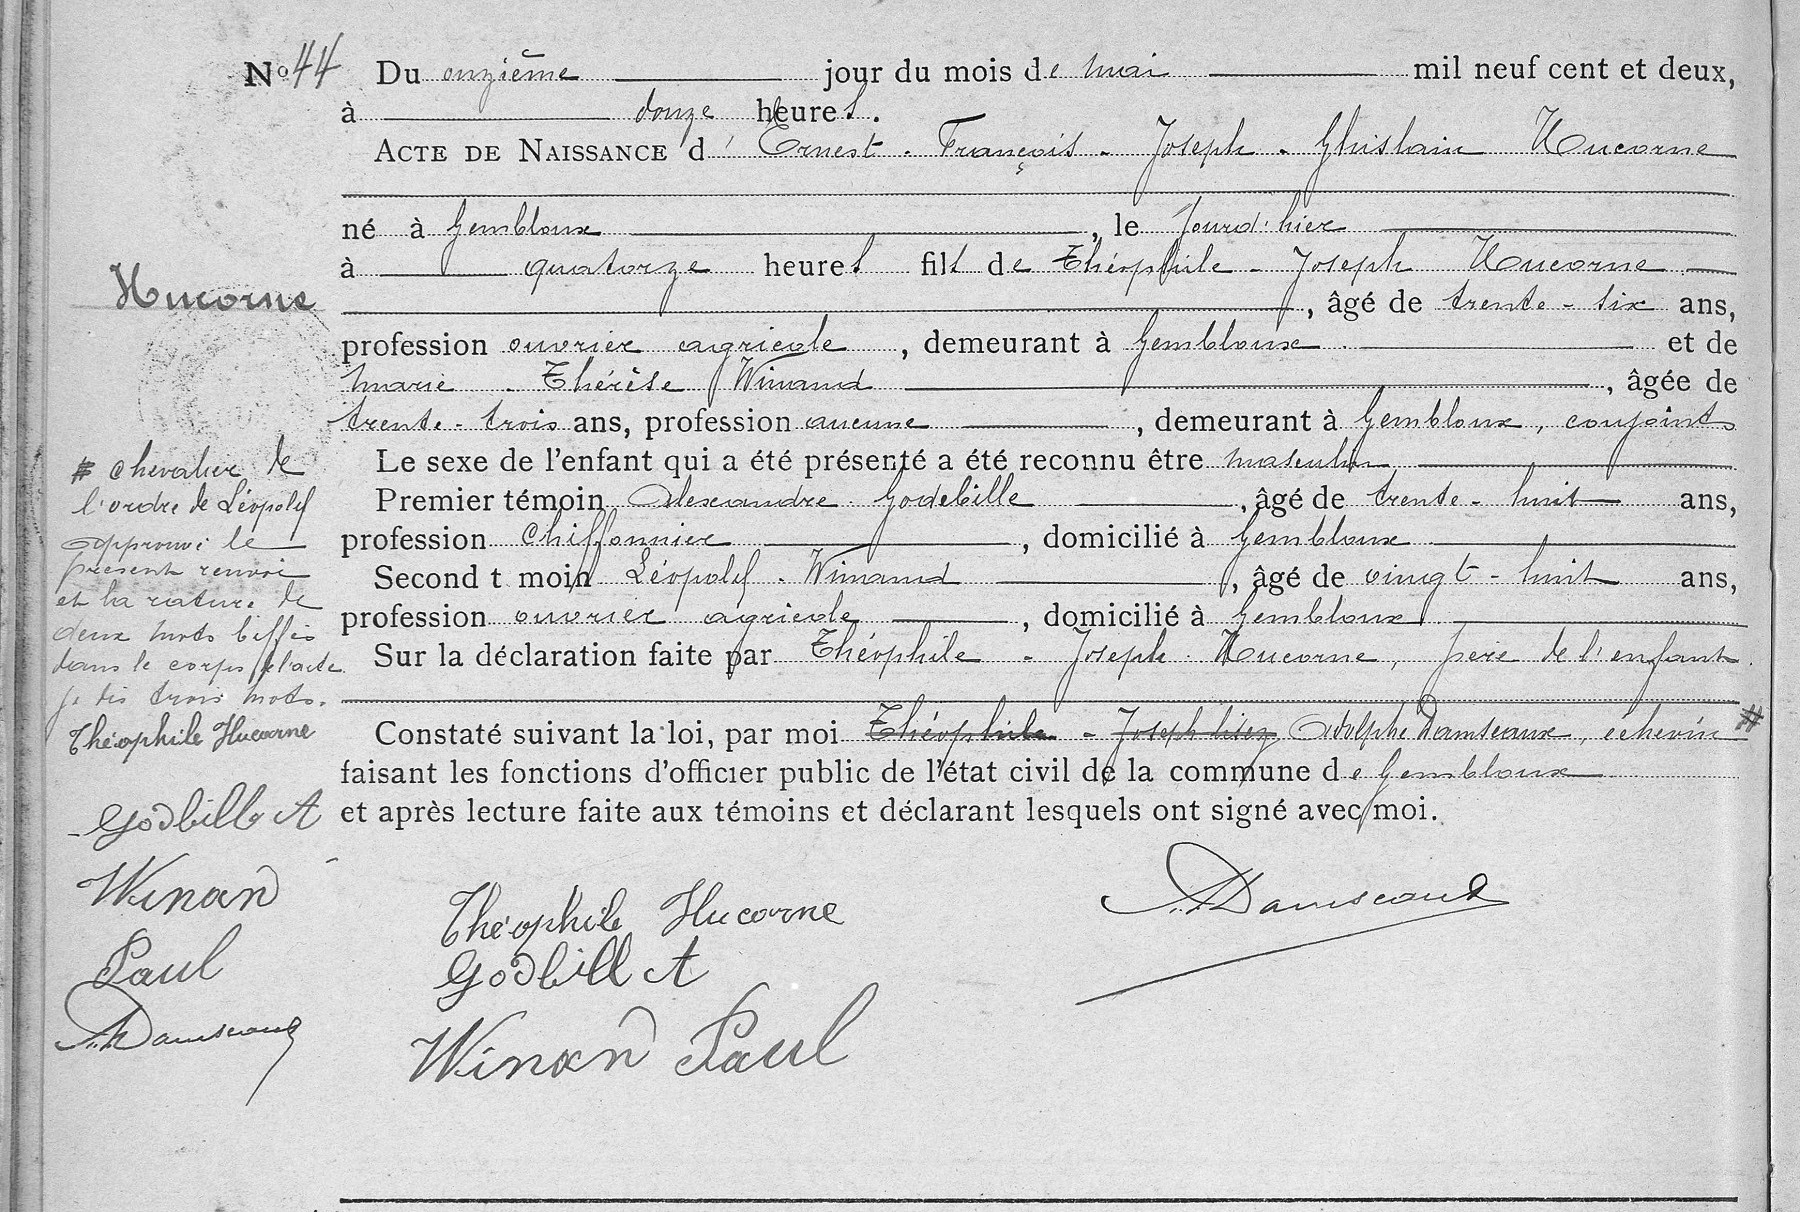 Nº 44 Du onzième jour du mois de mai mil neuf cent et deux,
à douze heures.
ACTE DE NAISSANCE d' Ernest - François - Joseph - Ghislain Hucorne
né à Gembloux, le jourd'hier
à quatorze heures fils de Théophile - Joseph Hucorne
Hucorne
, âgé de trente - six ans,
profession ouvrier agricole, demeurant à Gembloux et de
Marie - Thérèse Winand, âgée de
trente - trois ans, profession aucune, demeurant à Gembloux, conjoints
Le sexe de l'enfant qui a été présenté a été reconnu être masculin
Premier témoin Alexandre Godebille, âgé de trente - huit ans,
profession Chiffonnier, domicilié à Gembloux
Second t moin Léopold - Winand, âgé de vingt - huit ans,
profession ouvrier agricole, domicilié à Gembloux
Sur la déclaration faite par Théophile - Joseph Hucorne, père de l'enfant.
Constaté suivant la loi, par moi Théophile - Joseph Adolphe Damseaux, échevin #
faisant les fonctions d'officier public de l'état civil de la commune de Gembloux
et après lecture faite aux témoins et déclarant lesquels ont signé avec moi.
# chevalier de
l'ordre de Léopold
approuvé le
présent renvoi
et la rature de
deux mots biffés
dans le corps de l'acte
je dis trois mots.
Théophile Hucorne
Godbille A
Winan
Paul
A. Damseaux
Théophile Hucorne
Godbill A
Winan Paul
A. Damseaux